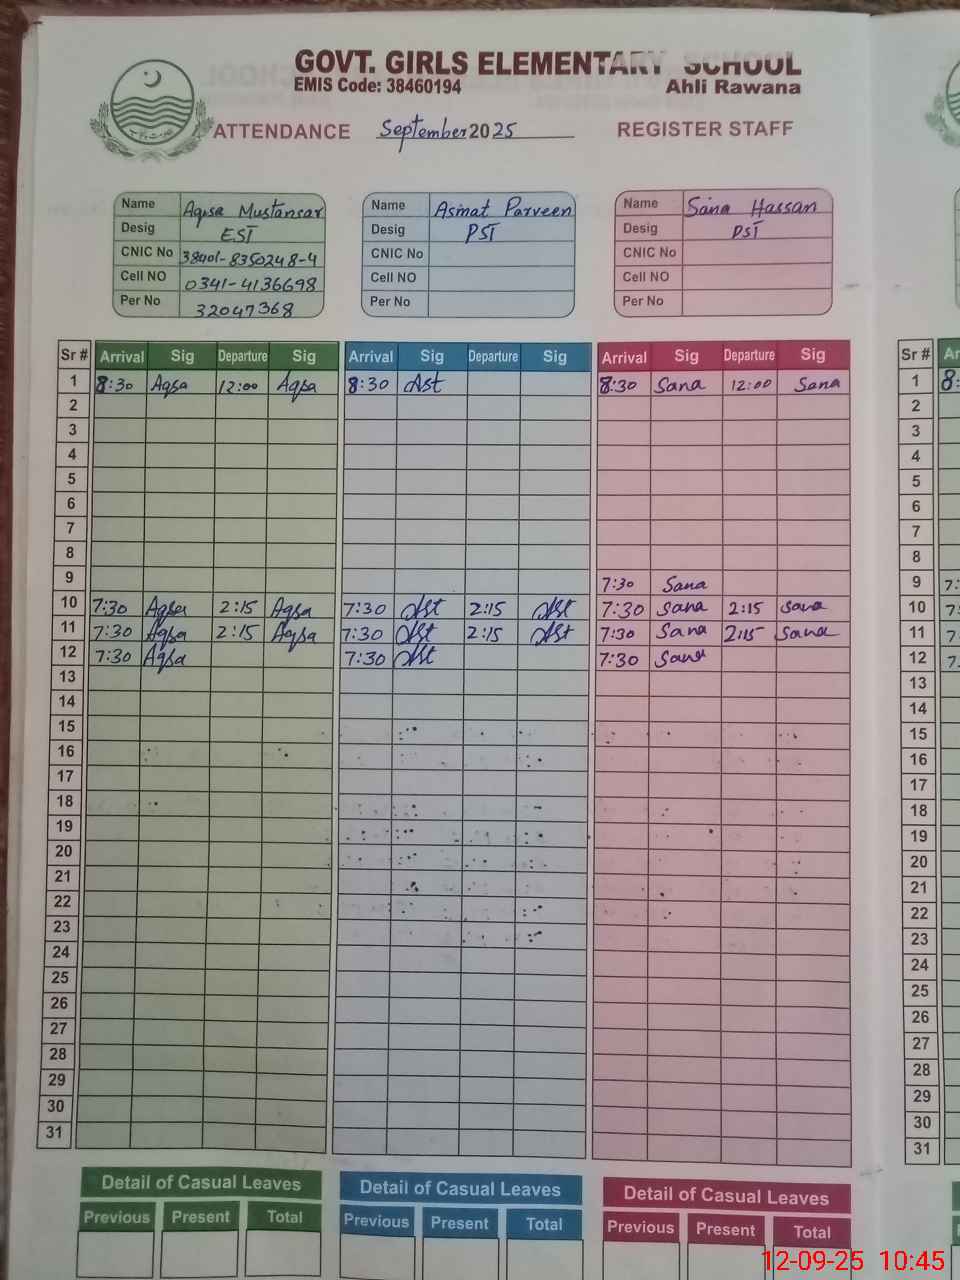 GOVT. GIRLS ELEMENTARY SCHOOL
EMIS Code: 38460194 Ahli Rawana
ATTENDANCE September 2025 REGISTER STAFF
Name Aqsa Mustansar Name Asmat Parveen Name Sana Hassan
Desig EST Desig PST Desig PST
CNIC No 38401-8350248-4 CNIC No CNIC No
Cell NO 0341-4136698 Cell NO Cell NO
Per No 32047368 Per No Per No
Sr # Arrival Sig Departure Sig Arrival Sig Departure Sig Arrival Sig Departure Sig Sr #
1 8:30 Aqsa 12:00 Aqsa 8:30 Ast 8:30 Sana 12:00 Sana 1
2 2
3 3
4 4
5 5
6 6
7 7
8 8
9 7:30 Sana 9
10 7:30 Aqsa 2:15 Aqsa 7:30 Ast 2:15 Ast 7:30 Sana 2:15 Sana 10
11 7:30 Aqsa 2:15 Aqsa 7:30 Ast 2:15 Ast 7:30 Sana 2:15 Sana 11
12 7:30 Aqsa 7:30 Ast 7:30 Sana 12
13 13
14 14
15 15
16 16
17 17
18 18
19 19
20 20
21 21
22 22
23 23
24 24
25 25
26 26
27 27
28 28
29 29
30 30
31 31
Detail of Casual Leaves Detail of Casual Leaves Detail of Casual Leaves
Previous Present Total Previous Present Total Previous Present Total
12-09-25 10:45